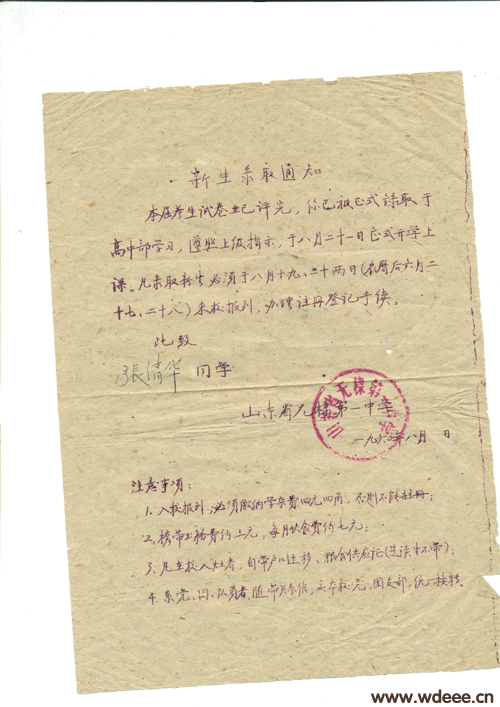 新生录取通知
本届考生试卷业已评完，你已被正式录取于
高中部学习，遵照上级指示，于八月二十一日正式开学上
课。凡录取新生必须于八月十九、二十两日(农历后六月二
十七、二十八)来校报到，办理注册登记手续。
此致
张清华 同学
山东省无棣第一中学
一九六〇年八月 日
注意事项：
1. 入校报到，必须缴纳学杂费四元四角，否则不能注册；
2. 携带书籍费约三元，每月伙食费约七元；
3. 凡在校入灶者，自带户口迁移、粮食供应证(走读生不带)；
4. 系党、团、队员者，随带关系信，交本校党、团支部，统一接转。
www.wdeee.cn